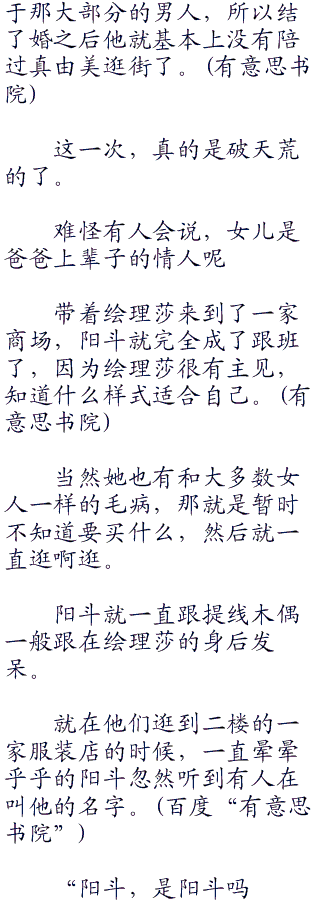 于那大部分的男人，所以结
了婚之后他就基本上没有陪
过真由美逛街了。(有意思书
院)
这一次，真的是破天荒
的了。
难怪有人会说，女儿是
爸爸上辈子的情人呢
带着绘理莎来到了一家
商场，阳斗就完全成了跟班
了，因为绘理莎很有主见，
知道什么样式适合自己。(有
意思书院)
当然她也有和大多数女
人一样的毛病，那就是暂时
不知道要买什么，然后就一
直逛啊逛。
阳斗就一直跟提线木偶
一般跟在绘理莎的身后发
呆。
就在他们逛到二楼的一
家服装店的时候，一直晕晕
乎乎的阳斗忽然听到有人在
叫他的名字。(百度“有意思
书院”)
“阳斗，是阳斗吗